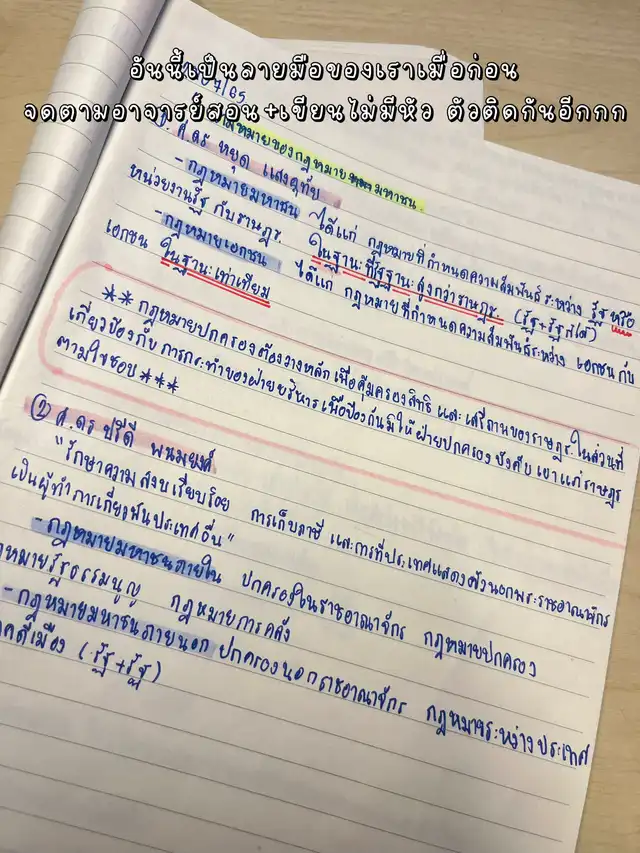 อันนี้เป็นลายมือของเราเมื่อก่อน
จดตามอาจารย์สอน+เขียนไม่มีหัว ตัวติดกันอีกกก
07/65
ความหมายของกฎหมายมหาชน.
ศ.ดร หยุด แสงอุทัย
- กฎหมายมหาชน ได้แก่ กฎหมายที่กำหนดความสัมพันธ์ระหว่าง รัฐ หรือ
หน่วยงานรัฐ กับราษฎร. ในฐานะที่รัฐฐานะสูงกว่าราษฎร. (รัฐ+รัฐก็ได้)
- กฎหมายเอกชน ได้แก่ กฎหมายที่กำหนดความสัมพันธ์ระหว่าง เอกชน กับ
เอกชน ในฐานะเท่าเทียม
** กฎหมายปกครองต้องวางหลัก เพื่อคุ้มครองสิทธิ และ เสรีภาพของราษฎร. ในส่วนที่
เกี่ยวข้องกับ การกระทำของฝ่ายบริหาร เพื่อป้องกันมิให้ฝ่ายปกครอง บังคับ เอาแก่ราษฎร
ตามใจชอบ***
② ศ.ดร ปรีดี พนมยงค์
"รักษาความสงบเรียบร้อย การเก็บภาษี และ การที่ประเทศแสดงตัวนอกพระราชอาณาจักร
เป็นผู้ทำการเกี่ยวพันประเทศอื่น"
- กฎหมายมหาชนภายใน ปกครองในราชอาณาจักร กฎหมายปกครอง
กฎหมายรัฐธรรมนูญ กฎหมายการคลัง
- กฎหมายมหาชนภายนอก ปกครองนอกราชอาณาจักร กฎหมายระหว่างประเทศ
คดีเมือง (รัฐ+รัฐ)